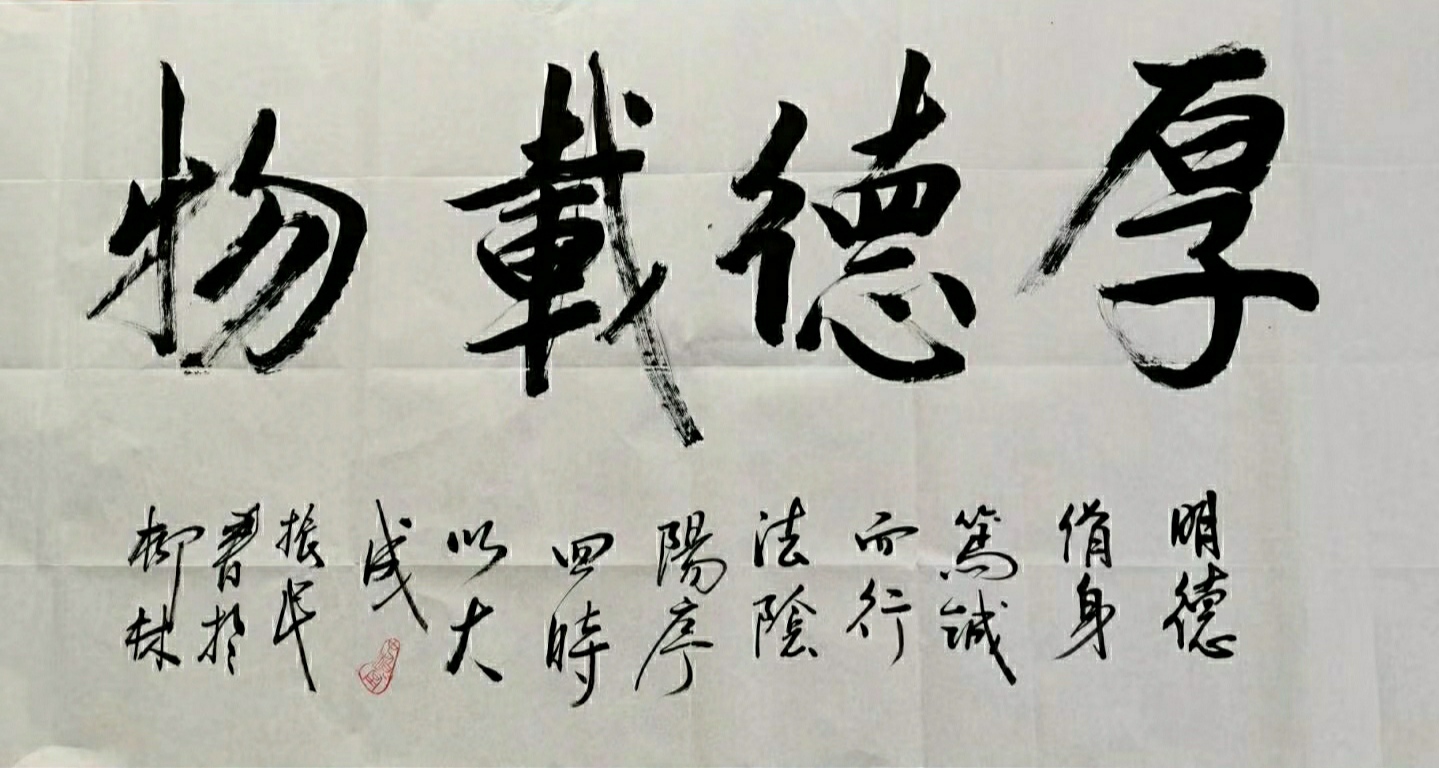 厚德載物
明德
脩身
篤誠
而行
法陰
陽序
四時
以大
成
振民
書於
柳林